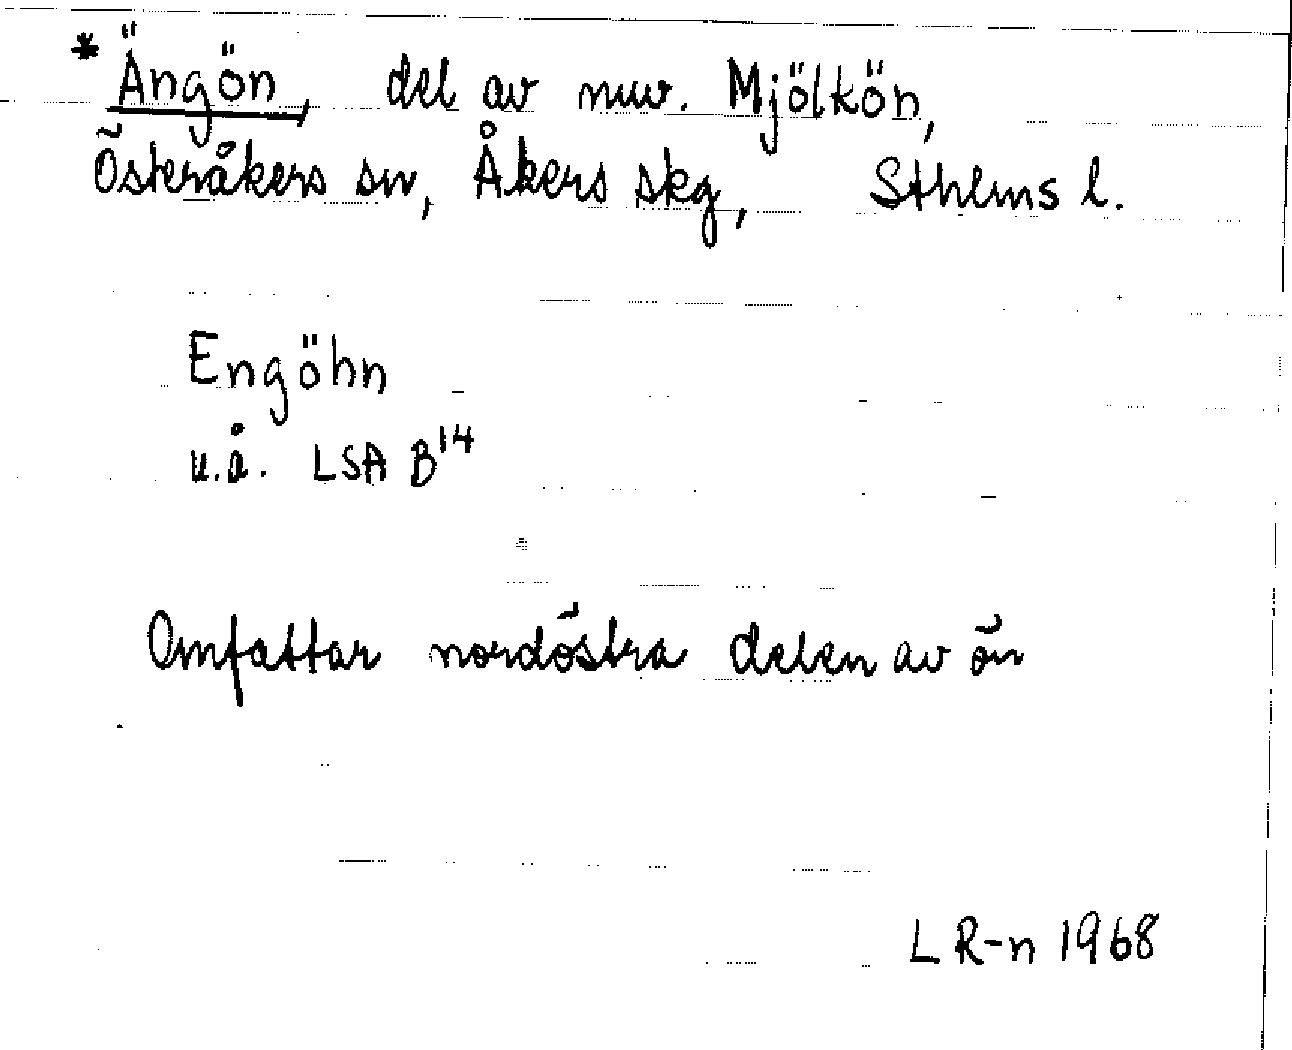 * Ängön, del av nuv. Mjölkön,
Österåkers sn, Åkers skg, Sthlms l.
Engöhn
u.å. LSA B¹⁴
Omfattar nordöstra delen av ön
L R-n 1968